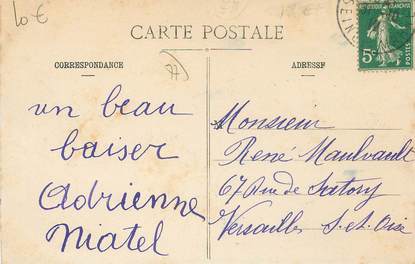 10 €
CARTE POSTALE
CORRESPONDANCE
ADRESSE
77
5c
POSTES
un beau
baiser
Adrienne
Niatel
Monsieur
René Maulvault
67 Rue de Satory
Versailles S. et Oise